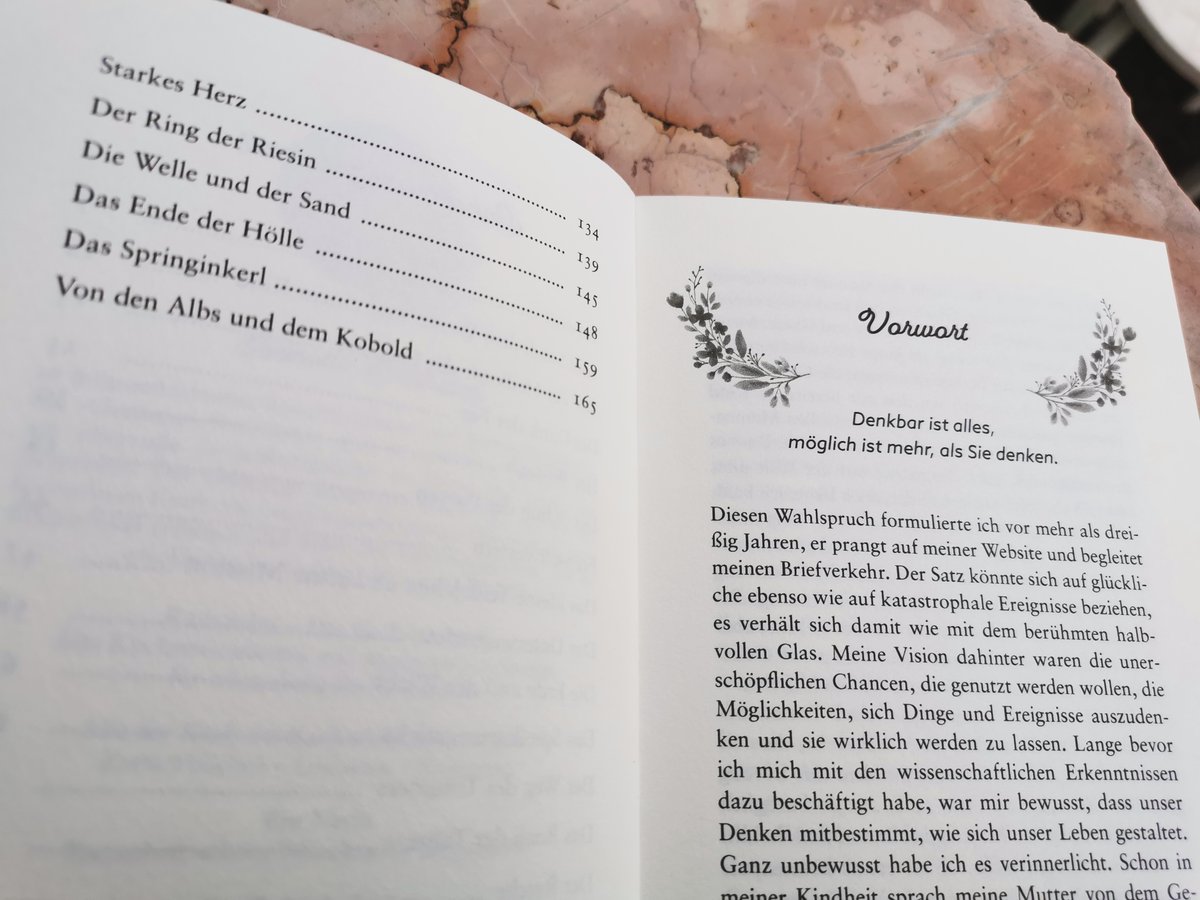 Starkes Herz .................... 134
Der Ring der Riesin .................... 139
Die Welle und der Sand .................... 145
Das Ende der Hölle .................... 148
Das Springinkerl .................... 159
Von den Albs und dem Kobold .................... 165
Vorwort
Denkbar ist alles,
möglich ist mehr, als Sie denken.
Diesen Wahlspruch formulierte ich vor mehr als drei-
ßig Jahren, er prangt auf meiner Website und begleitet
meinen Briefverkehr. Der Satz könnte sich auf glückli-
che ebenso wie auf katastrophale Ereignisse beziehen,
es verhält sich damit wie mit dem berühmten halb-
vollen Glas. Meine Vision dahinter waren die uner-
schöpflichen Chancen, die genutzt werden wollen, die
Möglichkeiten, sich Dinge und Ereignisse auszuden-
ken und sie wirklich werden zu lassen. Lange bevor
ich mich mit den wissenschaftlichen Erkenntnissen
dazu beschäftigt habe, war mir bewusst, dass unser
Denken mitbestimmt, wie sich unser Leben gestaltet.
Ganz unbewusst habe ich es verinnerlicht. Schon in
meiner Kindheit sprach meine Mutter von dem Ge-